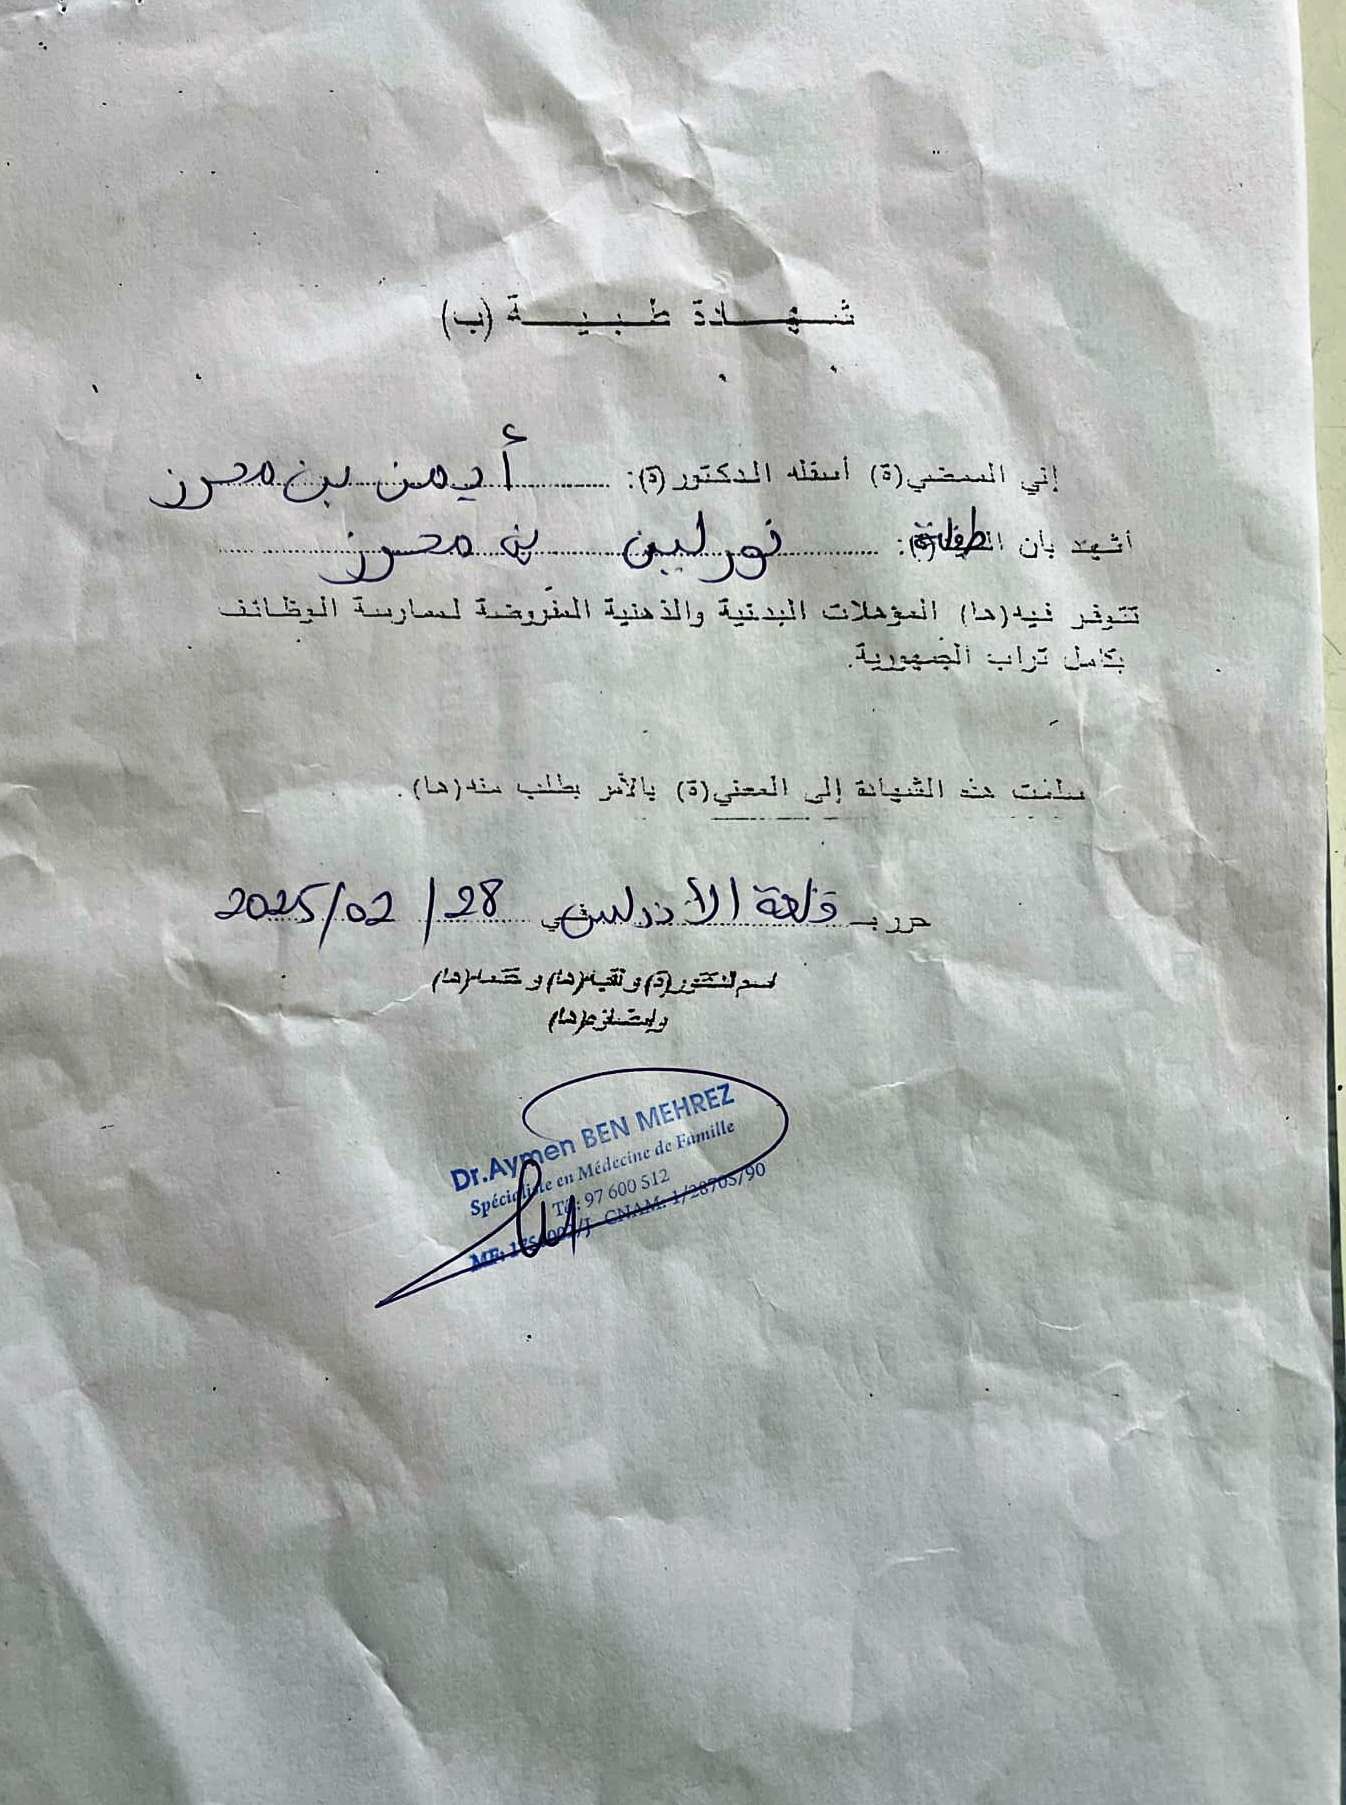 شهادة طبية (ب)
إني الممضي(ة) أسفله الدكتور(ة): أيمن بن محرز
أشهد بأن الطفلة: نورلين بن محرز
تتوفر فيه(ها) المؤهلات البدنية والذهنية المفروضة لممارسة الوظائف
بكامل تراب الجمهورية.
سلمت هذه الشهادة إلى المعني(ة) بالأمر بطلب منه(ها).
حرر بـ قلعة الأندلس في 28/02/2025
اسم الدكتور(ة) ولقبه(ها) وختمه(ها)
وإمضاؤه(ها)
Dr.Aymen BEN MEHREZ
Spécialiste en Médecine de Famille
Tél: 97 600 512
MF: /J CNAM: 1/28705/90